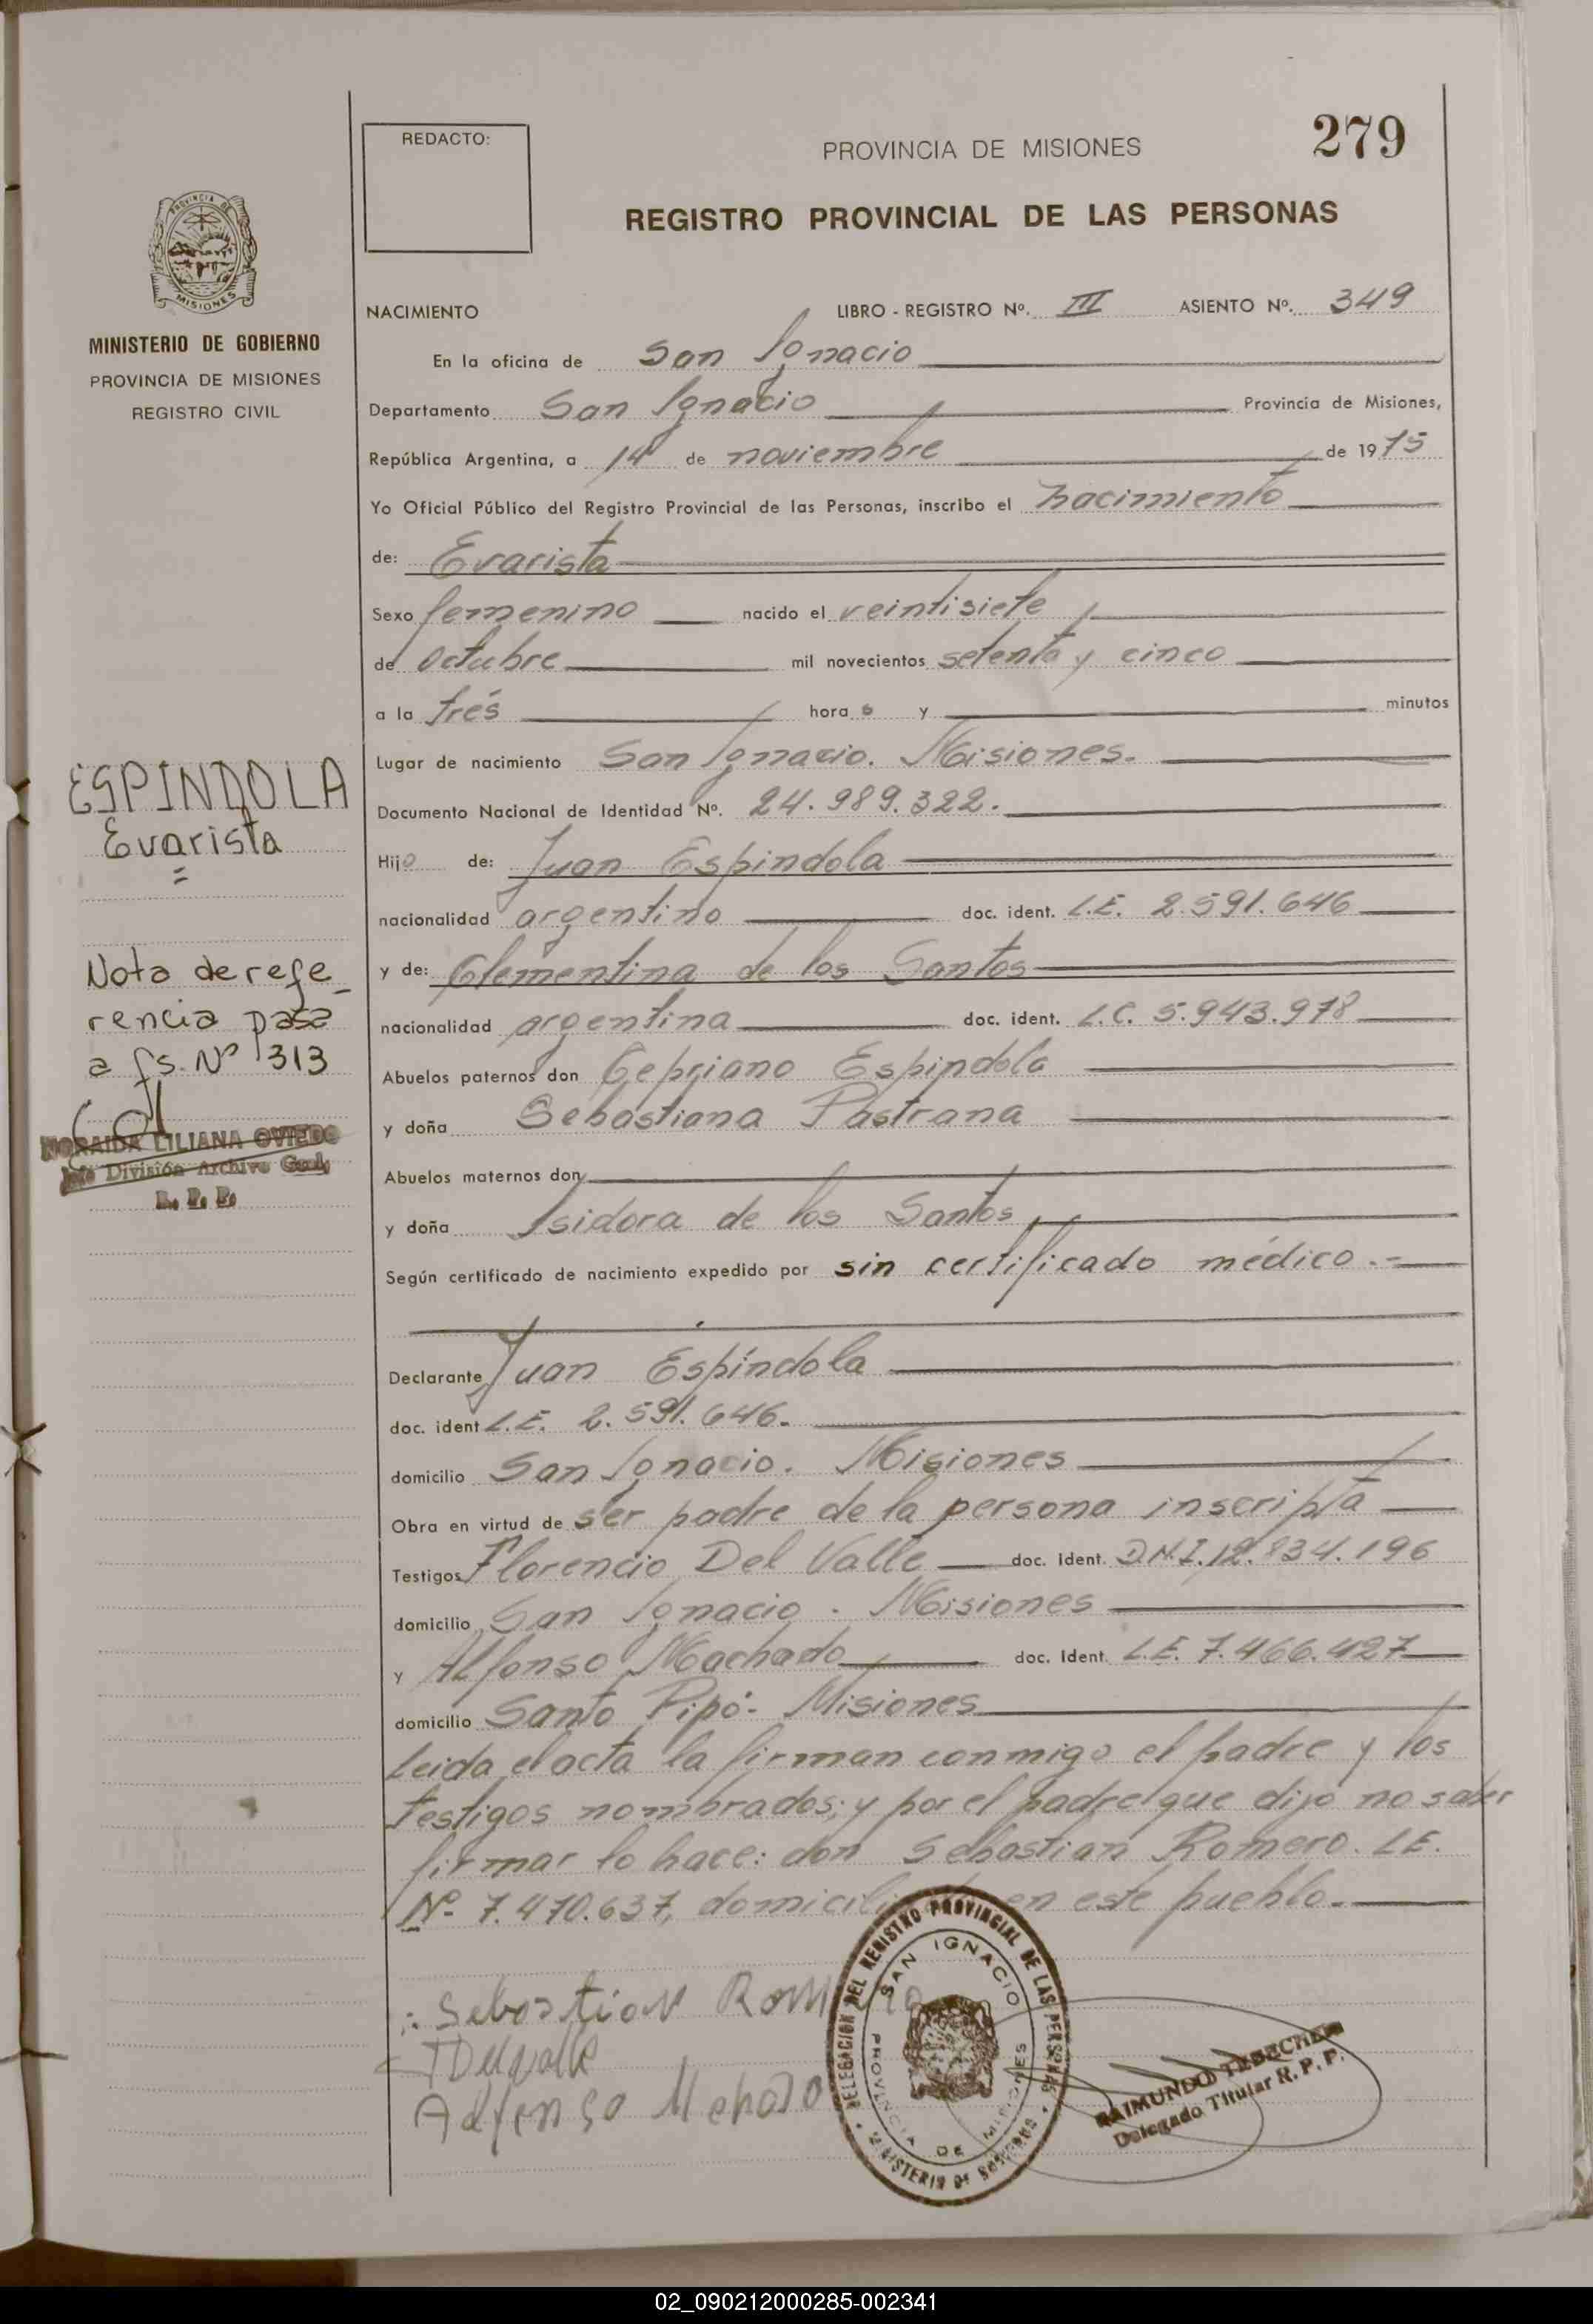 279
REDACTO:
PROVINCIA DE MISIONES
REGISTRO PROVINCIAL DE LAS PERSONAS
PROVINCIA DE
MISIONES
MINISTERIO DE GOBIERNO
PROVINCIA DE MISIONES
REGISTRO CIVIL
NACIMIENTO LIBRO - REGISTRO Nº. III ASIENTO Nº. 349
En la oficina de San Ignacio
Departamento San Ignacio Provincia de Misiones,
República Argentina, a 14 de noviembre de 1975
Yo Oficial Público del Registro Provincial de las Personas, inscribo el nacimiento
de: Evarista
Sexo femenino nacido el veintisiete
de octubre mil novecientos setenta y cinco
a la trés hora s y minutos
Lugar de nacimiento San Ignacio. Misiones.
Documento Nacional de Identidad Nº. 24.989.322.
Hijo de: Juan Espindola
nacionalidad argentino doc. ident. L.E. 2.591.646
y de: Clementina de los Santos
nacionalidad argentina doc. ident. L.C. 5.943.978
Abuelos paternos don Cepriano Espindola
y doña Sebastiana Pastrana
Abuelos maternos don
y doña Isidora de los Santos
Según certificado de nacimiento expedido por sin certificado médico.-
Declarante Juan Espíndola
doc. ident L.E. 2.591.646.
domicilio San Ignacio. Misiones
Obra en virtud de ser padre de la persona inscripta
Testigos Florencio Del Valle doc. ident. D.N.I. 12.834.196
domicilio San Ignacio. Misiones
y Alfonso Machado doc. Ident. L.E. 7.466.427
domicilio Santo Pipó- Misiones
Leida el acta la firman conmigo el padre y los
testigos nombrados; y por el padre que dijo no saber
firmar lo hace: don Sebastian Romero. LE.
Nº 7.470.637, domicili en este pueblo.
ESPINDOLA
Evarista
=
Nota de refe_
rencia pasa
a fs. Nº 313
NORAIDA LILIANA OVIEDO
Jefe División Archivo Gral.
R. P. P.
Sebastian Romero
FDelvalle
Alfonso Mchado
DELEGACION DEL REGISTRO PROVINCIAL DE LAS PERSONAS
SAN IGNACIO
PROVINCIA DE MISIONES
MINISTERIO DE GOBIERNO
RAIMUNDO TEBECHERI
Delegado Titular R. P. P.
02_090212000285-002341